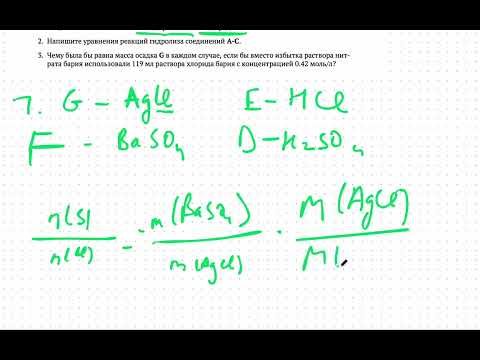 2. Напишите уравнения реакций гидролиза соединений A-C.
3. Чему была бы равна масса осадка G в каждом случае, если бы вместо избытка раствора нит-
рата бария использовали 119 мл раствора хлорида бария с концентрацией 0.42 моль/л?
7. G – AgCl E – HCl
F – BaSO4 D – H2SO4
n(S) / n(Cl) = m(BaSO4) / m(AgCl) · M(AgCl) / M(